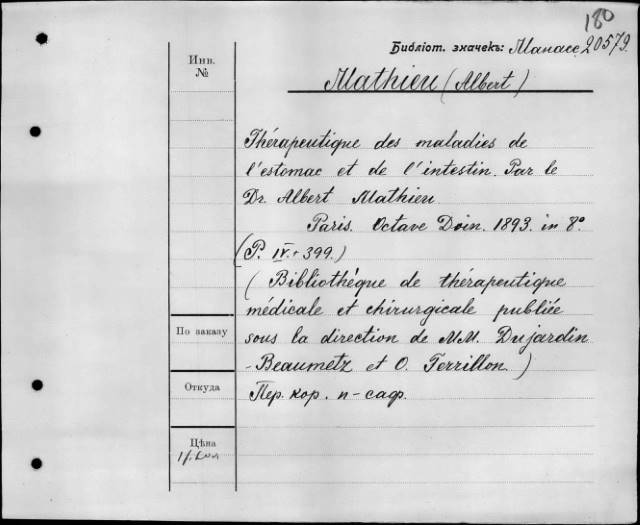 180
Библіот. значекъ: Манасс. 20579.
Инв.
№
Mathieu (Albert)
Thérapeutique des maladies de
l'estomac et de l'intestin. Par le
Dr. Albert Mathieu
Paris. Octave Doin. 1893. in 8º
(P. IV + 399.)
(Bibliothèque de thérapeutique
médicale et chirurgicale publiée
По заказу
sous la direction de MM. Dujardin
-Beaumetz et O. Terrillon.)
Откуда
Пер. кор. п-саф.
Цѣна